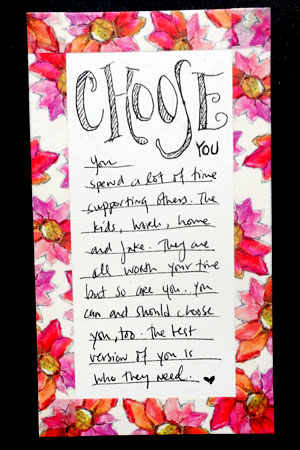 CHOOSE
YOU
You
spend a lot of time
supporting others. The
kids, work, home
and Jake. They are
all worth your time
but so are you. You
can and should choose
you, too. The best
version of you is
who they need. ♥